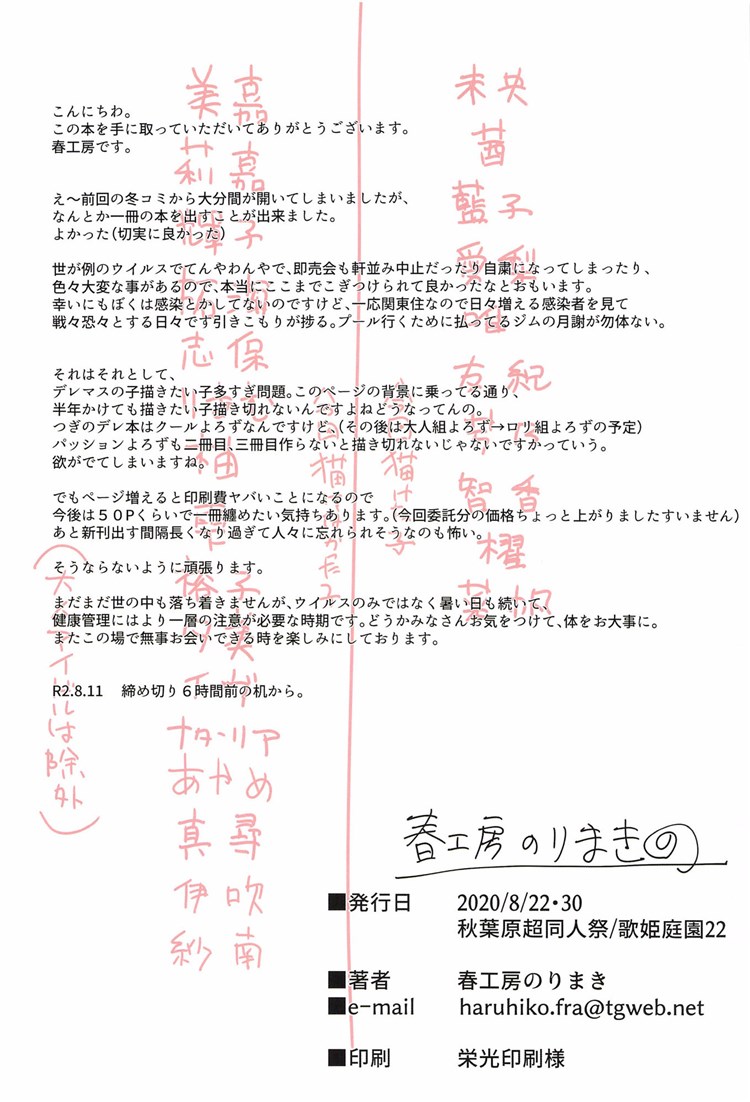 こんにちわ。
この本を手に取っていただいてありがとうございます。
春工房です。
え〜前回の冬コミから大分間が開いてしまいましたが、
なんとか一冊の本を出すことが出来ました。
よかった（切実に良かった）
世が例のウイルスでてんやわんやで、即売会も軒並み中止だったり自粛になってしまったり、
色々大変な事があるので、本当にここまでこぎつけられて良かったなとおもいます。
幸いにもぼくは感染とかしてないのですけど、一応関東住なので日々増える感染者を見て
戦々恐々とする日々です引きこもりが捗る。プール行くために払ってるジムの月謝が勿体ない。
それはそれとして、
デレマスの子描きたい子多すぎ問題。このページの背景に乗ってる通り、
半年かけても描きたい子描き切れないんですよねどうなってんの。
つぎのデレ本はクールよろずなんですけど、（その後は大人組よろず→ロリ組よろずの予定）
パッションよろずも二冊目、三冊目作らないと描き切れないじゃないですかっていう。
欲がでてしまいますね。
でもページ増えると印刷費ヤバいことになるので
今後は５０Pくらいで一冊纏めたい気持ちあります。（今回委託分の価格ちょっと上がりましたすいません）
あと新刊出す間隔長くなり過ぎて人々に忘れられそうなのも怖い。
そうならないように頑張ります。
まだまだ世の中も落ち着きませんが、ウイルスのみではなく暑い日も続いて、
健康管理にはより一層の注意が必要な時期です。どうかみなさんお気をつけて、体をお大事に。
またこの場で無事お会いできる時を楽しみにしております。
R2.8.11　締め切り６時間前の机から。
未央
茜
藍子
愛梨
唯
友紀
芳乃
智香
櫂
菜帆
美嘉
莉嘉
輝子
拓海
志保
柚
雫
裕子
ナターリア
あやめ
真尋
伊吹
紗南
春工房のりまきの
■発行日　2020/8/22・30
秋葉原超同人祭/歌姫庭園22
■著者　春工房のりまき
■e-mail　haruhiko.fra@tgweb.net
■印刷　栄光印刷様